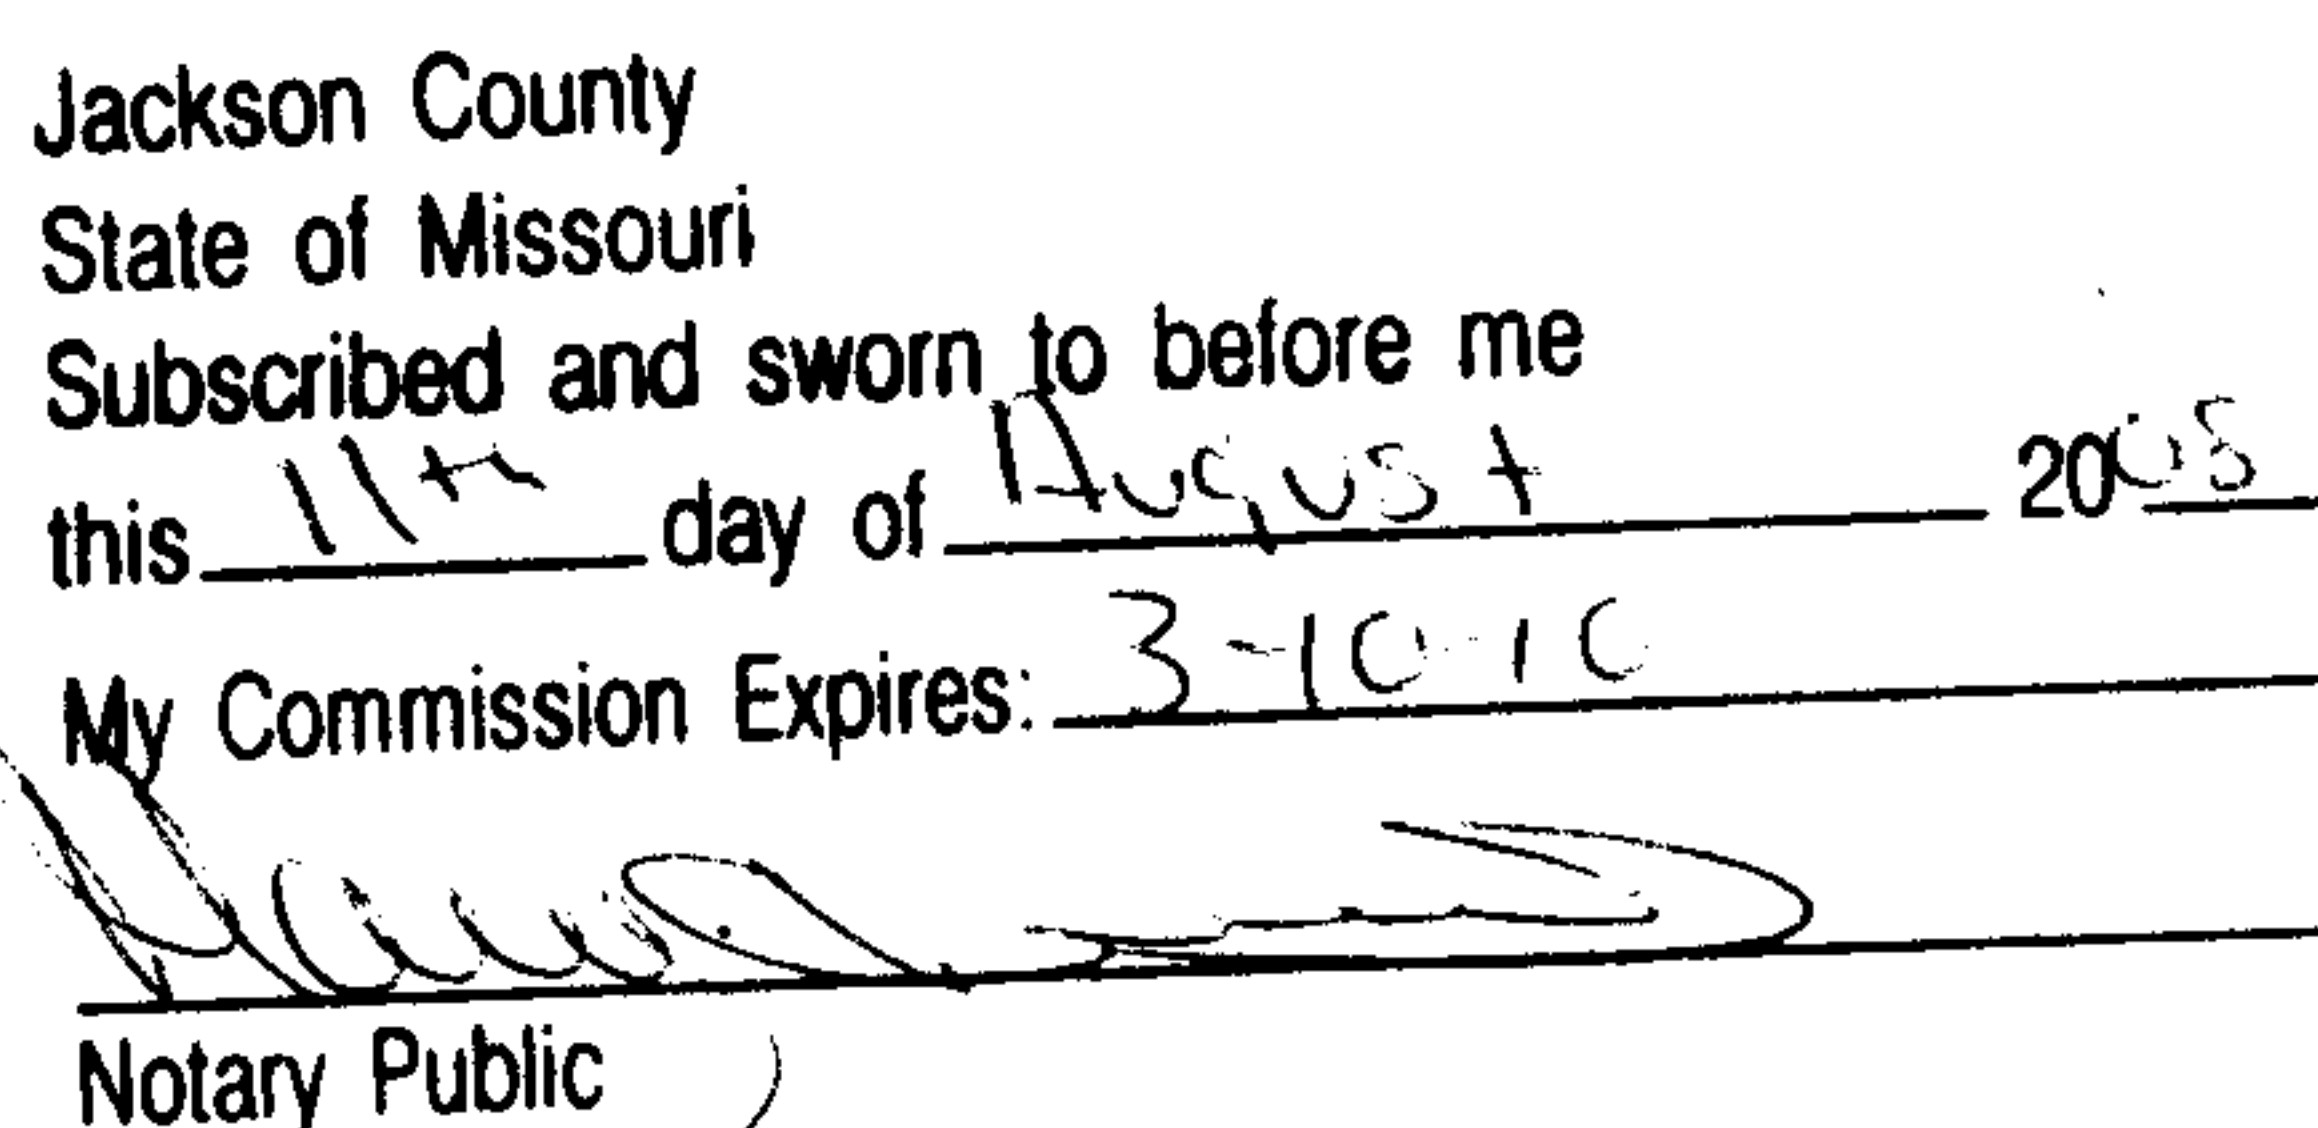 Jackson County
State of Missouri
Subscribed and sworn to before me
this 11th day of August 2008
My Commission Expires: 3-10-10
Notary Public